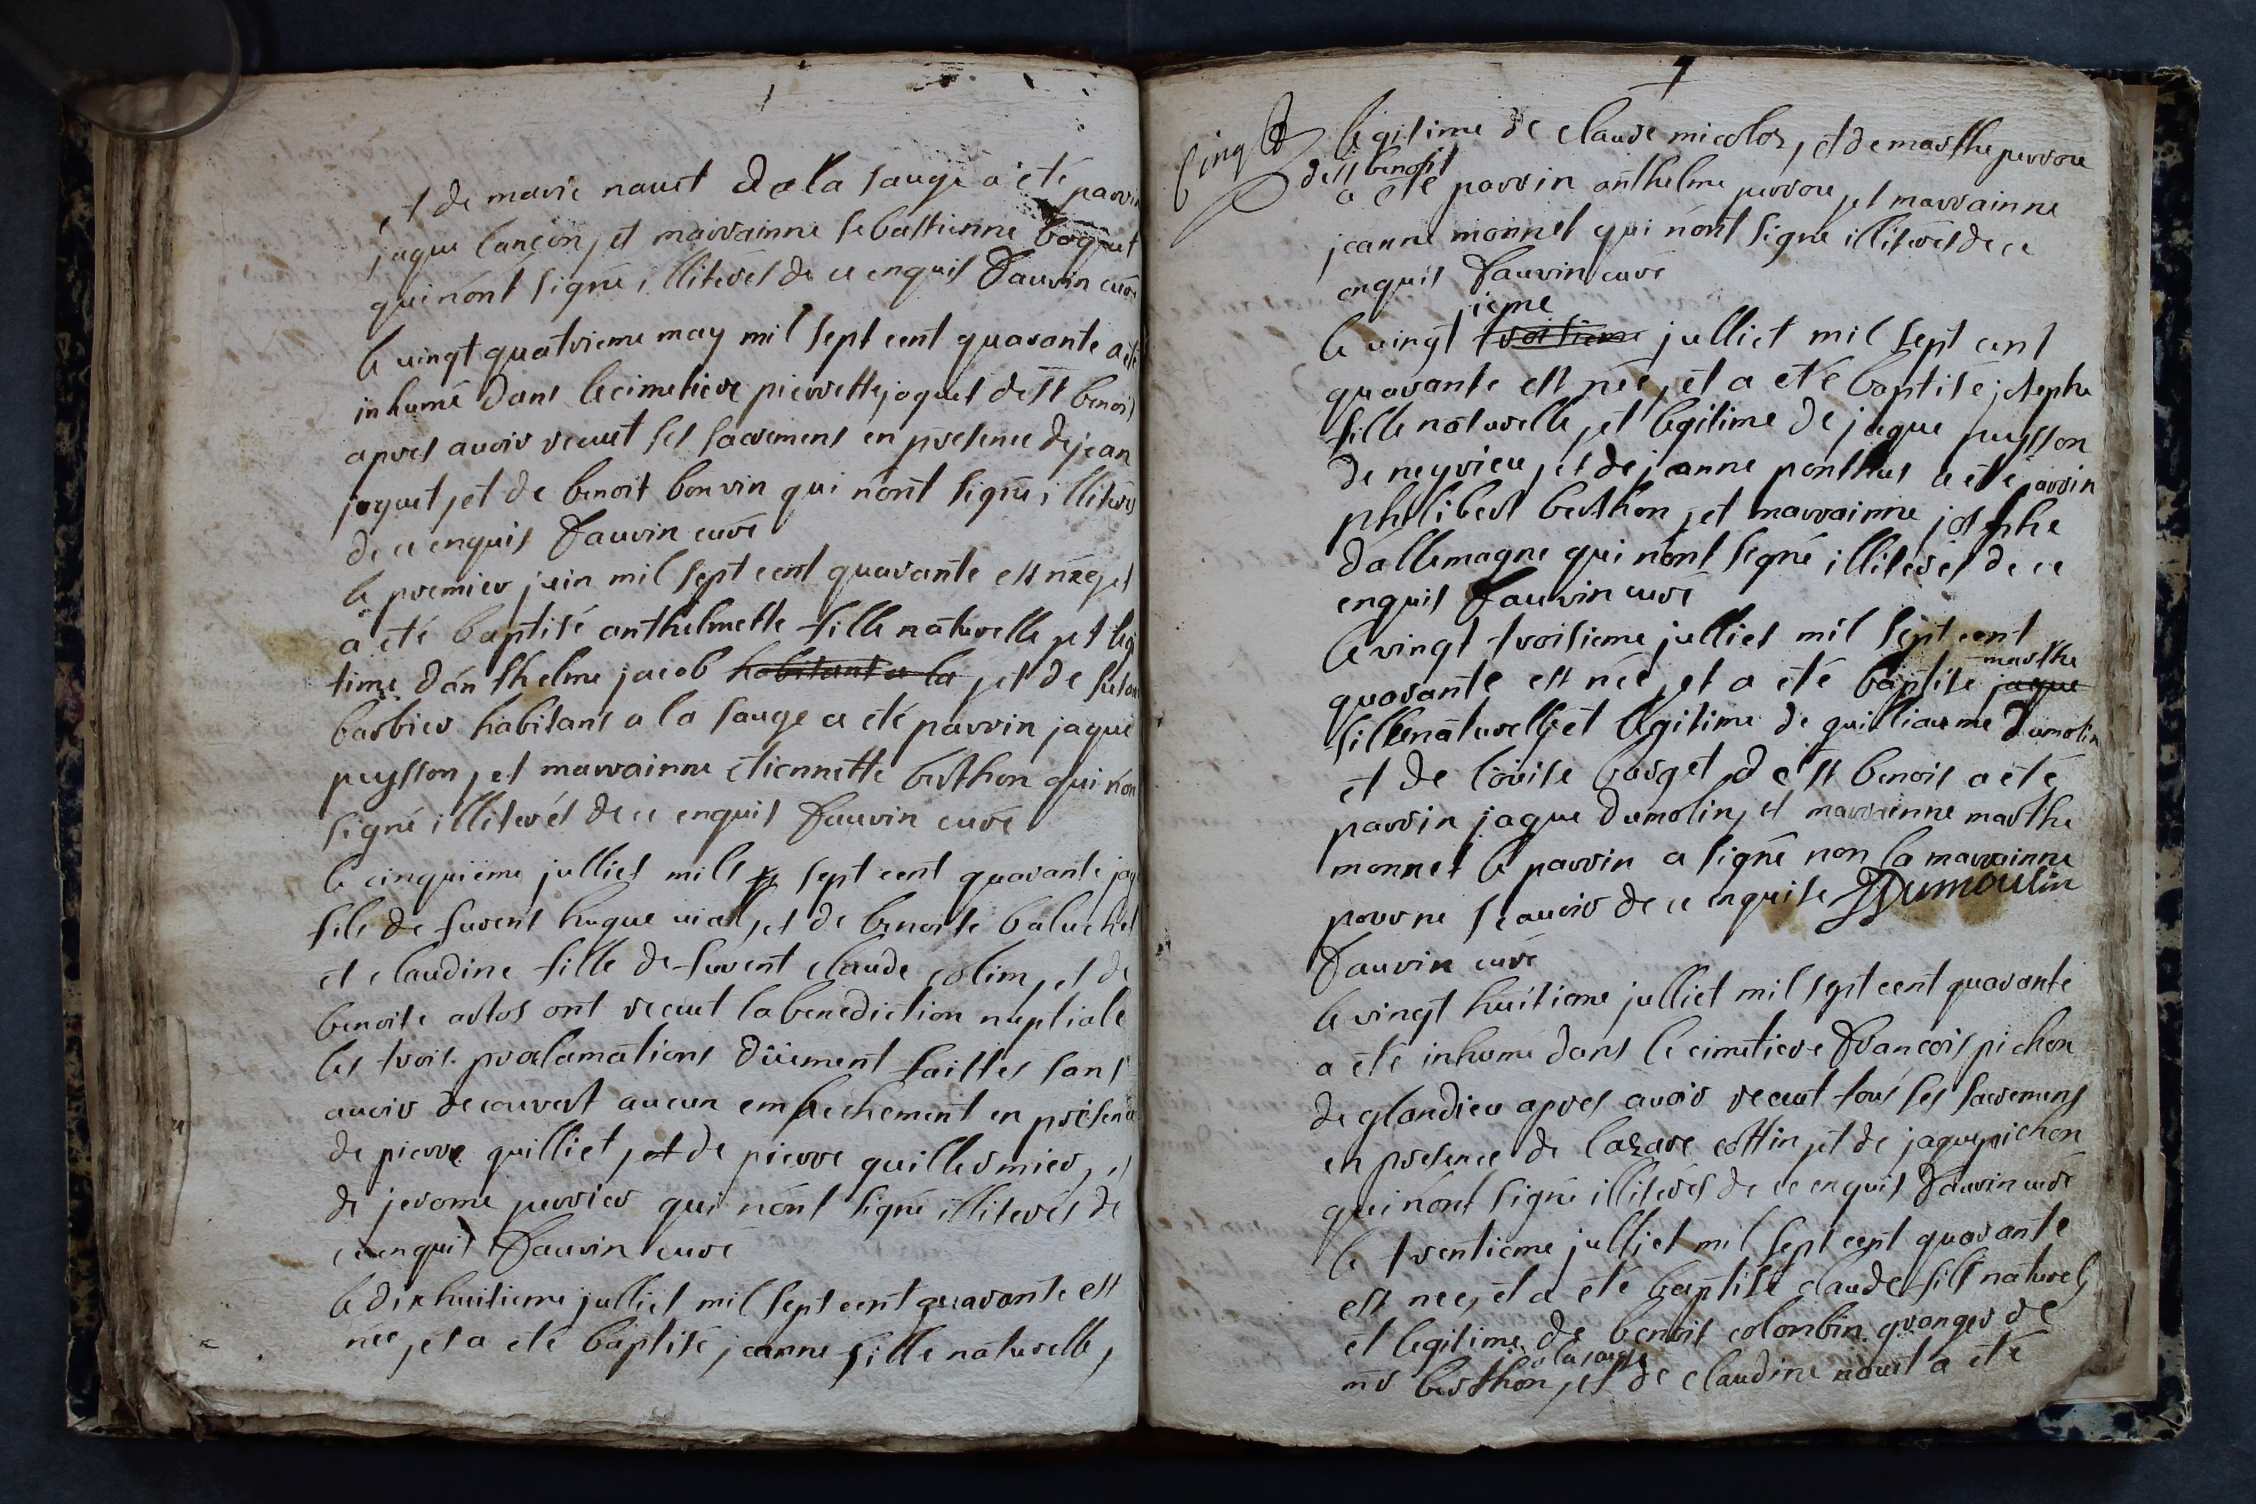 et de marie naust de la sauge a été parrin
jaque lançon, et marrainne sebastienne boquet
qui n'ont signé illiterés de ce enquis Fauvin curé
le vingt quatrieme may mil sept cent quarante a été
inhumé dans le cimetiere pierrette jaquet de st benoit
apres avoir recuut ses sacremens en presence de jean
jaquet, et de benoit bonvin qui n'ont signé illiterés
de ce enquis Fauvin curé
le premier juin mil sept cent quarante est née, et
a été baptisé anthelmette fille naturelle, et legi
time d'anthelme jacob habitant a la, et de
barbier habitans a la sauge a été parrin jaque
puysson, et marrainne etiennette berthon qui n'on
signé illiterés de ce enquis Fauvin curé
le cinquième julliet mils sept cent quarante jaq
fils de furent hugue vial, et de benoite baluchet
et claudine fille de furent claude colim, et de
benoite artos ont recuut la benediction nuptiale
les trois proclamations dûement faittes sans
avoir decouvert aucun empechement en présence
de pierre guilliet, et de pierre guillermier, et
de jerome perrier qui n'ont signé illiterés de
ce enquis Fauvin curé
le dixhuitieme julliet mil sept cent quarante est
née, et a été baptisé jeanne fille naturelle,
legitime de claude micolos, et de marthe perrou
de st benoit
a été parrin anthelme perrou, et marrainne
jeanne monnet qui n'ont signé illiterés de ce
enquis Fauvin curé
ieme
le vingt troisieme julliet mil sept cent
quarante est née, et a été baptisé josephe
fille naturelle, et legitime de jaque puysson
de neyrieu, et de jeanne ponthus a été parrin
philibert berthon, et marrainne josephe
d'allemagne qui n'ont signé illiterés de ce
enquis Fauvin curé
le vingt troisieme julliet mil sept cent
marthe
quarante est née, et a été baptisé jaque
fille naturelle, et legitime de guilliaume dumolin
et de louise borget de st benoit a été
parrin jaque dumolin, et marrainne marthe
monnet le parrin a signé non la marrainne
pour ne sçavoir de ce enquise JDumoulin
Fauvin curé
le vingt huitieme julliet mil sept cent quarante
a été inhumé dans le cimetiere François pichon
de glandieu apres avoir recuut tous ses sacremens
en presence de lazare cottin, et de jaque pichon
qui n'ont signé illiterés de ce enquis Fauvin curé
le trentieme julliet mil sept cent quarante
est nee, et a été baptisé claude fils naturel,
et legitime de benoit colombin granger de
a la sauge
mr berthon, et de claudine naust a été